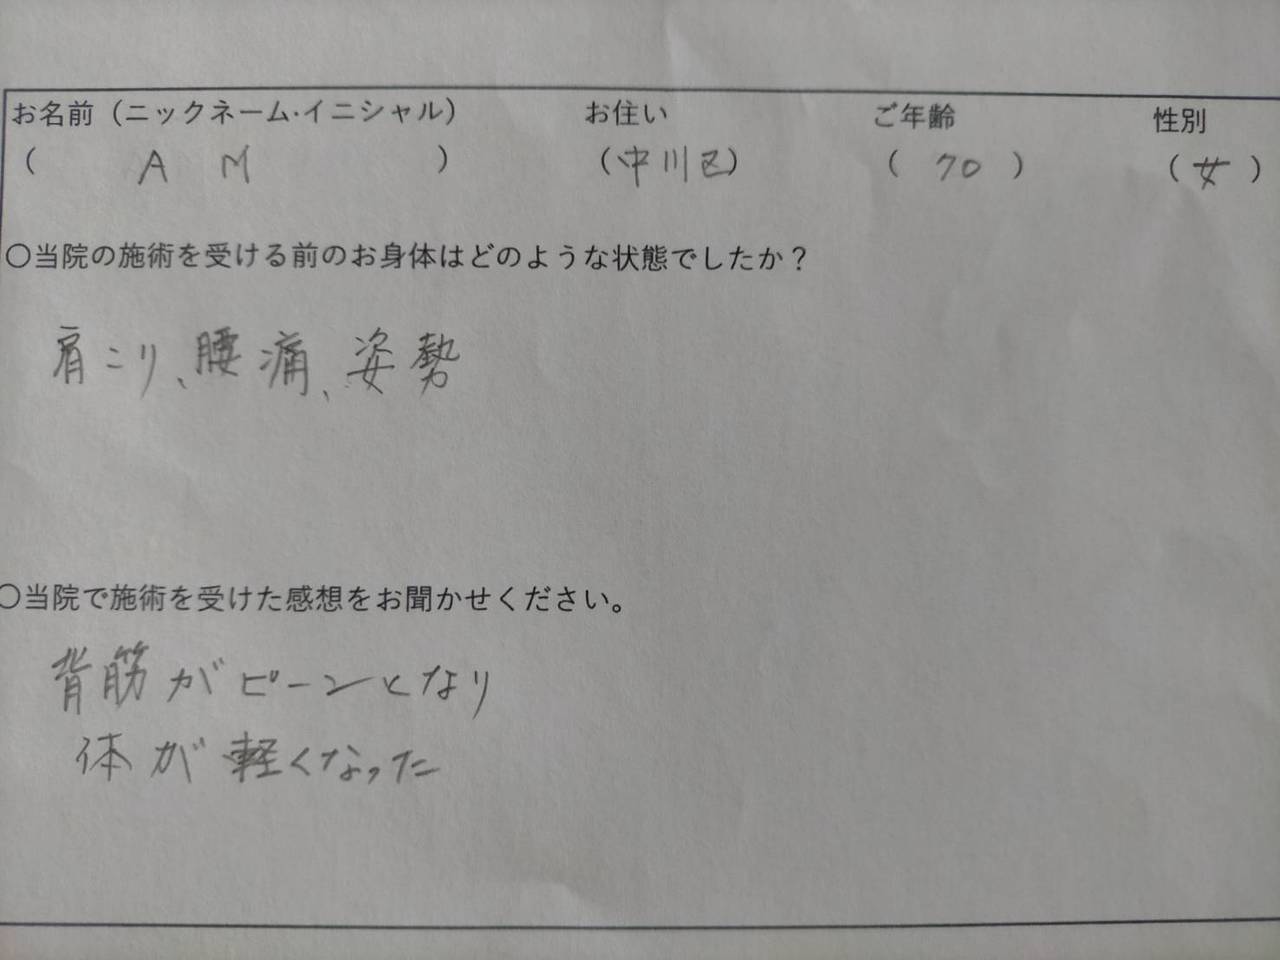 お名前（ニックネーム･イニシャル） お住い ご年齢 性別
（ A M ） （中川区） （ 70 ） （女）
〇当院の施術を受ける前のお身体はどのような状態でしたか？
肩こり、腰痛、姿勢
〇当院で施術を受けた感想をお聞かせください。
背筋がピーンとなり
体が軽くなった